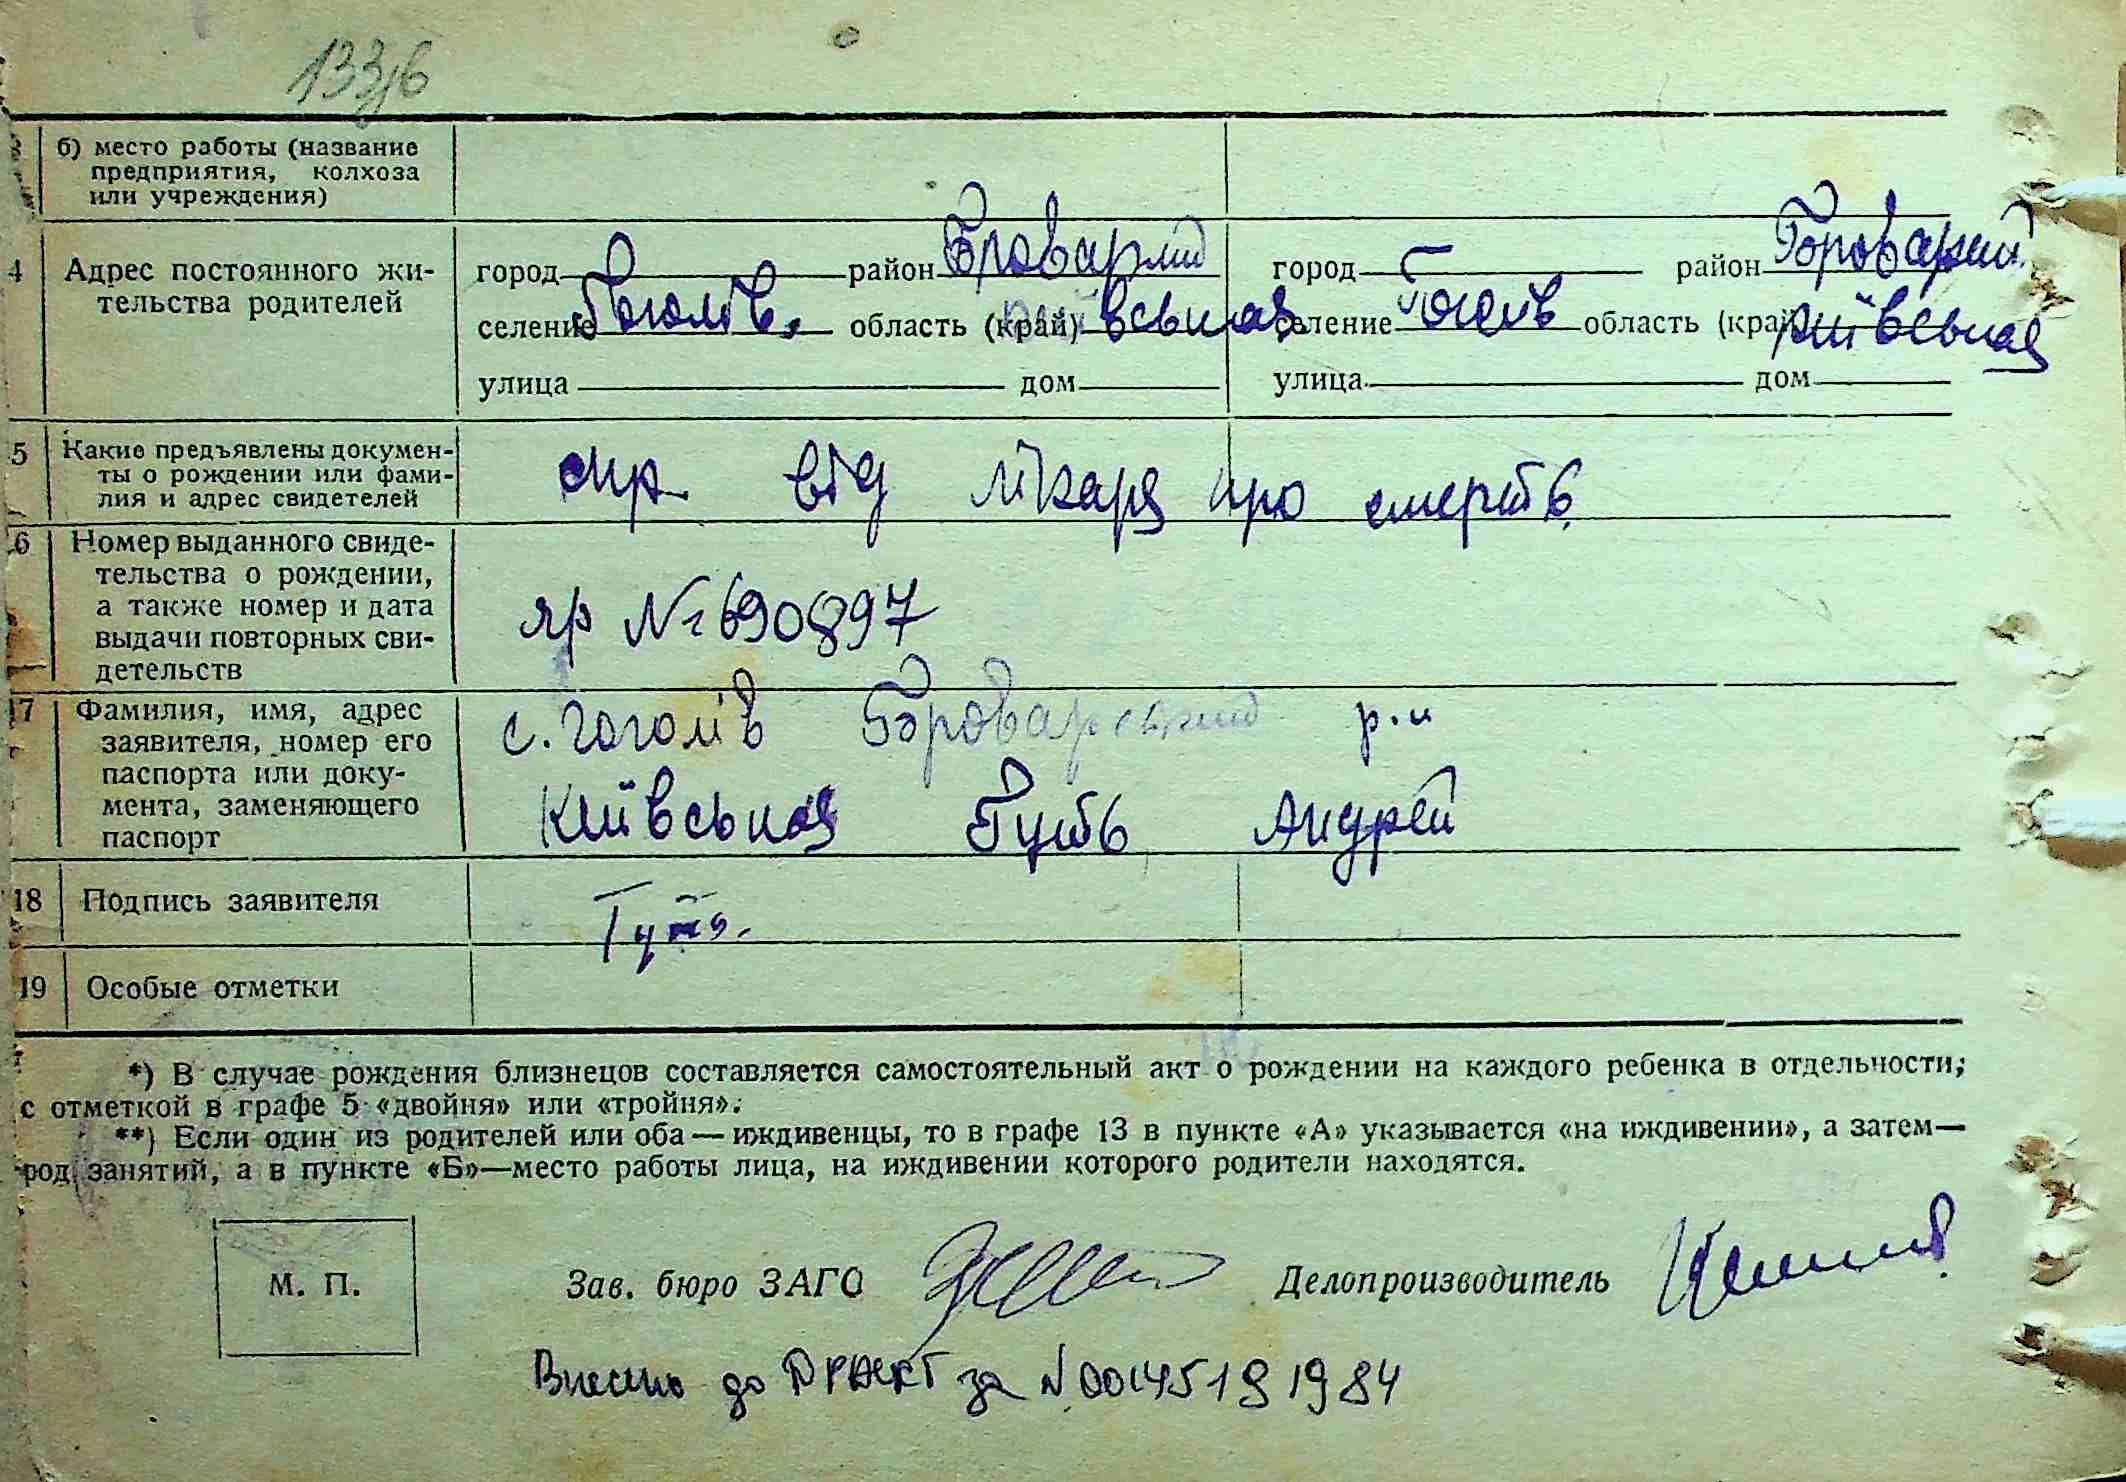 133/6
б) место работы (название
предприятия, колхоза
или учреждения)
4 Адрес постоянного жи-
тельства родителей
город район Броварский
селение Гоголів. область (край) Київська
улица дом
город район Броварский
селение Гоголів область (край) Київська
улица дом
5 Какие предъявлены докумен-
ты о рождении или фами-
лия и адрес свидетелей
від лікаря про смерть
6 Номер выданного свиде-
тельства о рождении,
а также номер и дата
выдачи повторных сви-
детельств
яр № 690897
17 Фамилия, имя, адрес
заявителя, номер его
паспорта или доку-
мента, заменяющего
паспорт
с. Гоголів Броварский р-н
Київська Гуть Андрей
18 Подпись заявителя
Гуть.
19 Особые отметки
*) В случае рождения близнецов составляется самостоятельный акт о рождении на каждого ребенка в отдельности;
с отметкой в графе 5 «двойня» или «тройня».
**) Если один из родителей или оба — иждивенцы, то в графе 13 в пункте «А» указывается «на иждивении», а затем—
род занятий, а в пункте «Б»—место работы лица, на иждивении которого родители находятся.
М. П.
Зав. бюро ЗАГС
Делопроизводитель
Внесено до ДРАЦСГ за N 00145191984